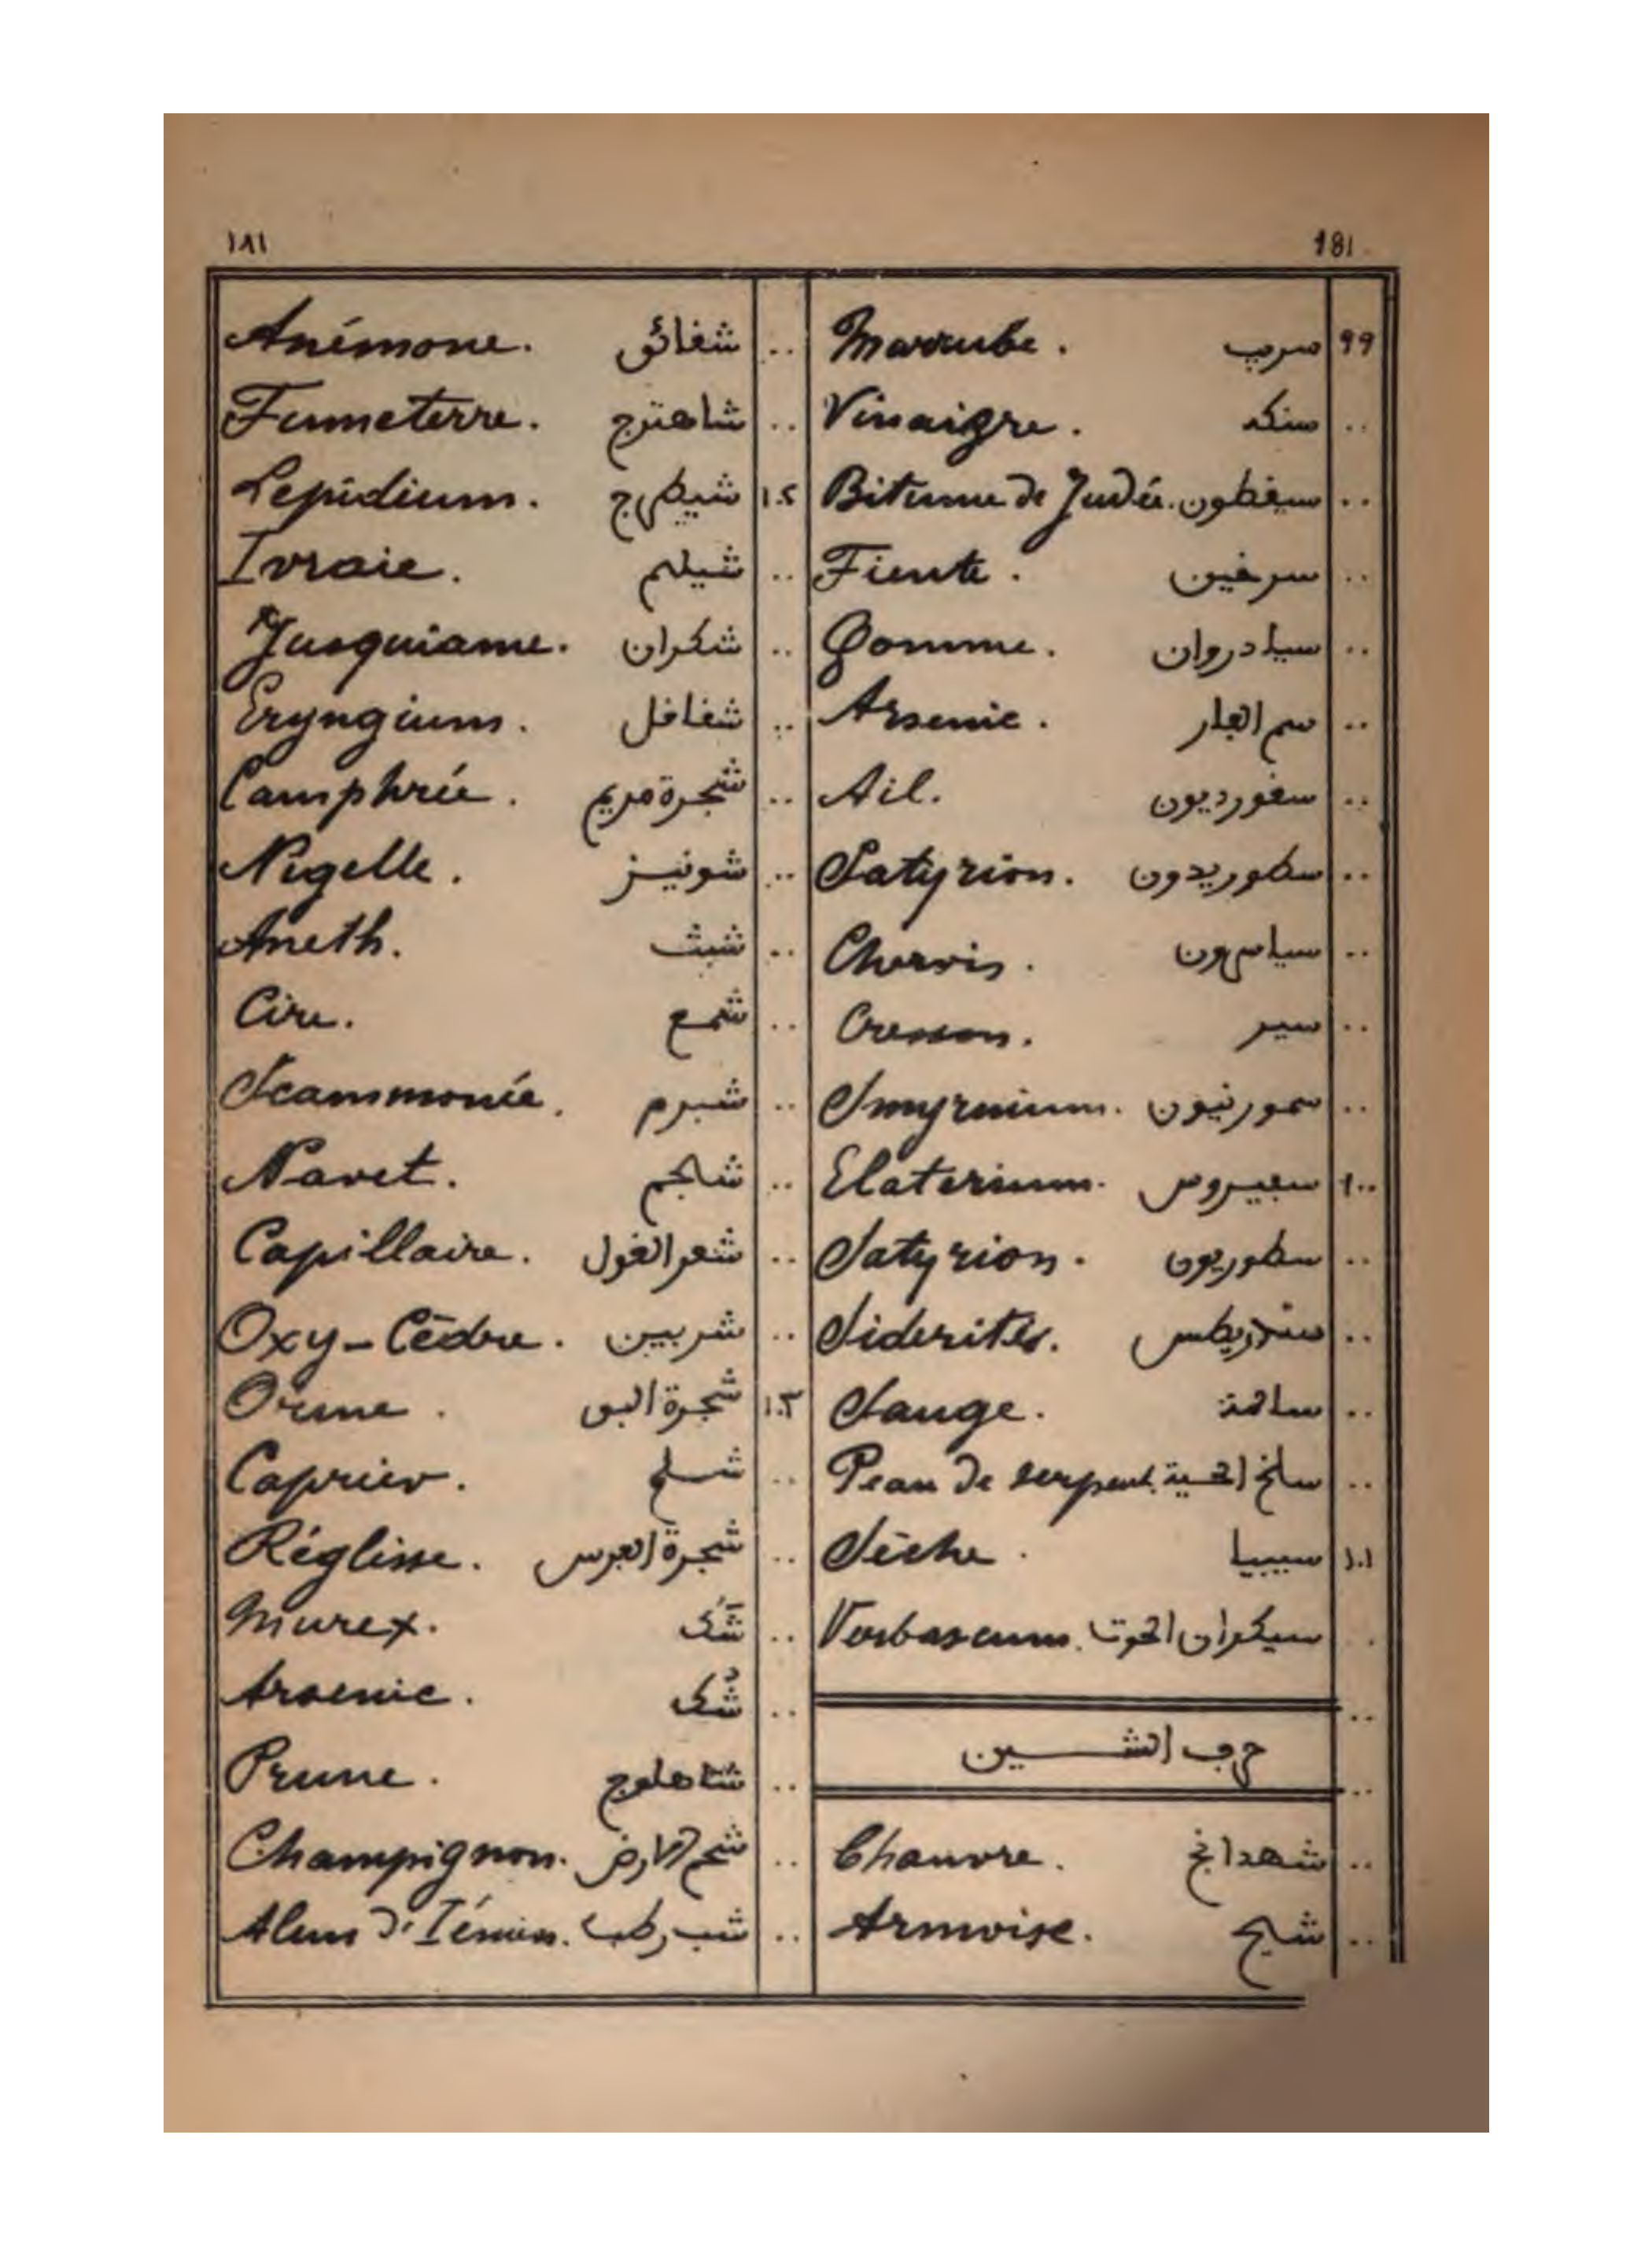 ١٨١ 181
٩٩ سرب Marrube.
.. سنكه Vinaigre.
.. سيفطون Bitume de Judée.
.. سرغين Fiente.
.. سيادروان Gomme.
.. سم الفار Arsenic.
.. سفورديون Ail.
.. سطوريدون Satyrion.
.. Chervis.
.. سير Cresson.
.. سمورنيون Smyrnium.
١٠٠ سيبيروس Elaterium.
.. سطوريون Satyrion.
.. سندريطس Siderités.
.. Sauge.
.. سلخ الحية Peau de serpent.
١٠١ سيبيا Sèche.
.. سيكران الحوت Verbascum.
حرف الشين
.. شهدانج Chanvre.
.. شيح Armoise.
.. شقائق Anémone.
.. شاهترج Fumeterre.
١٠٢ شيطرج Lepidium.
.. شيلم Ivraie.
.. شكران Jusquiame.
.. شفافل Eryngium.
.. شجرة مريم Camphrée.
.. شونيز Nigelle.
.. شبث Aneth.
.. شمع Cire.
.. شبرم Scammonée.
.. شلجم Navet.
.. شعر الغول Capillaire.
.. شربين Oxy-Cèdre.
١٠٣ شجرة البق Orme.
.. شلح Caprier.
.. شجرة الفرس Réglisse.
.. شَك Murex.
.. شُك Arsenic.
.. شاهلوج Prune.
.. شحم الارض Champignon.
.. شب رطب Alun d'Iémen.